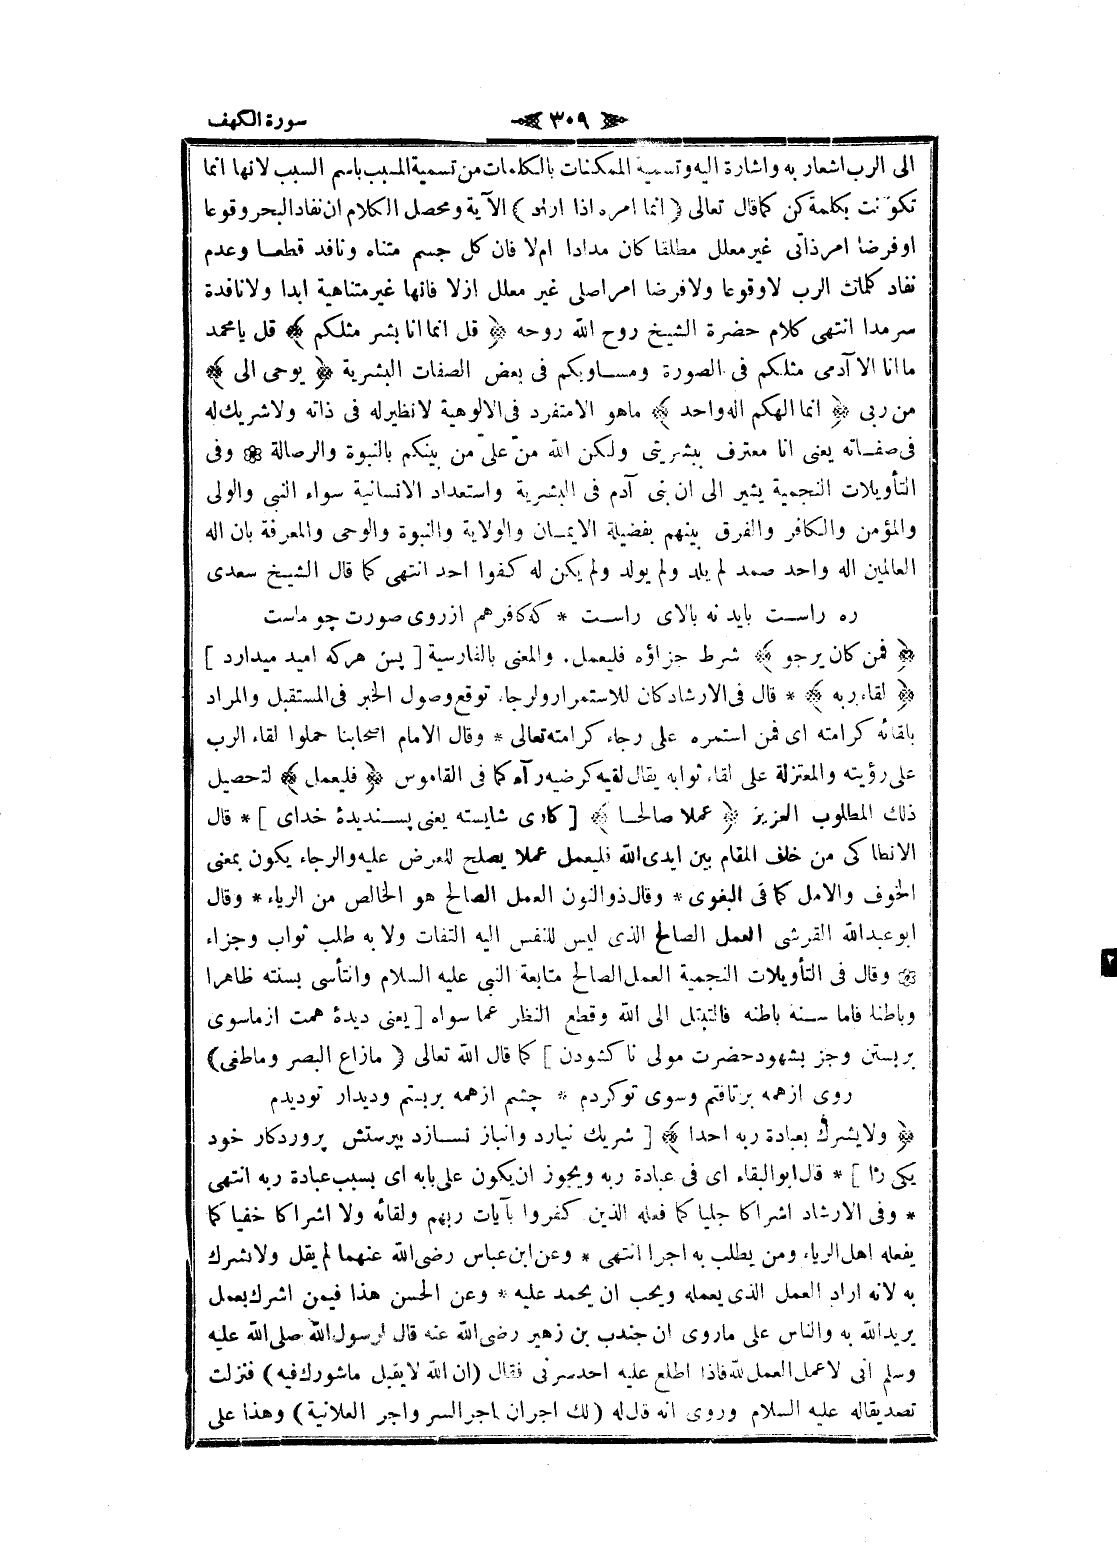 سورة الكهف ﴿ ٣٠٩ ﴾
الى الرب اشعار به واشارة اليه وتسمية الممكنات بالكلمات من تسمية المسبب باسم السبب لانها انما
تكونت بكلمة كن كما قال تعالى ( انما امره اذا اراد ) الآية ومحصل الكلام ان نفاد البحر وقوعا
اوفرضا امر ذاتى غير معلل مطلقا كان مدادا ام لا فان كل جسم متناه ونافد قطعا وعدم
نفاد كلمات الرب لا وقوعا ولا فرضا امر اصلى غير معلل ازلا فانها غير متناهية ابدا ولا نافدة
سرمدا انتهى كلام حضرة الشيخ روح الله روحه ﴿ قل انما انا بشر مثلكم ﴾ قل يا محمد
ما انا الا آدمى مثلكم فى الصورة ومساويكم فى بعض الصفات البشرية ﴿ يوحى الى ﴾
من ربى ﴿ انما الهكم اله واحد ﴾ ماهو الا متفرد فى الالوهية لا نظير له فى ذاته ولا شريك له
فى صفاته يعنى انا معترف ببشريتى ولكن الله منّ علىّ من بينكم بالنبوة والرصالة ۞ وفى
التأويلات النجمية يشير الى ان بنى آدم فى البشرية واستعداد الانسانية سواء النبى والولى
والمؤمن والكافر والفرق بينهم بفضيلة الايمان والولاية والنبوة والوحى والمعرفة بان اله
العالمين اله واحد صمد لم يلد ولم يولد ولم يكن له كفوا احد انتهى كما قال الشيخ سعدى
ره راست بايد نه بالاى راست * كه كافر هم ازروى صورت چو ماست
﴿ فمن كان يرجو ﴾ شرط جزاؤه فليعمل. والمعنى بالفارسية [ پس هركه اميد ميدارد ]
﴿ لقاء ربه ﴾ * قال فى الارشاد كان للاستمرار ولرجاء توقع وصول الخبر فى المستقبل والمراد
بلقائه كرامته اى فمن استمره على رجاء كرامته تعالى * وقال الامام اصحابنا حملوا لقاء الرب
على رؤيته والمعتزلة على لقاء ثوابه يقال لقيه كرضيه رآه كما فى القاموس ﴿ فليعمل ﴾ لتحصيل
ذلك المطلوب العزيز ﴿ عملا صالحا ﴾ [ كارى شايسته يعنى پسنديدهٔ خداى ] * قال
الانطاكى من خاف المقام بين ايدى الله فليعمل عملا يصلح للعرض عليه والرجاء يكون بمعنى
الخوف والامل كما فى البغوى * وقال ذو النون العمل الصالح هو الخالص من الرياء * وقال
ابو عبدالله القرشى العمل الصالح الذى ليس للنفس اليه التفات ولا به طلب ثواب وجزاء
۞ وقال فى التأويلات النجمية العمل الصالح متابعة النبى عليه السلام وانتأسى بسنته ظاهرا
وباطنا فاما سنه باطنه فالتبتل الى الله وقطع النظر عما سواه [ يعنى ديدهٔ همت ازماسوى
بربستن وجز بشهود حضرت مولى ناكشودن ] كما قال الله تعالى ( مازاغ البصر وماطغى )
روى ازهمه برتافتم وسوى تو كردم * چشم ازهمه بربستم وديدار تو ديدم
﴿ ولا يشرك بعبادة ربه احدا ﴾ [ شريك نيارد وانباز نسازد بپرستش پروردكار خود
يكى را ] * قال ابو البقاء اى فى عبادة ربه ويجوز ان يكون على بابه اى بسبب عبادة ربه انتهى
* وفى الارشاد اشراكا جليا كما فعله الذين كفروا بآيات ربهم ولقائه ولا اشراكا خفيا كما
يفعله اهل الرياء ومن يطلب به اجرا انتهى * وعن ابن عباس رضى الله عنهما لم يقل ولا يشرك
به لانه اراد العمل الذى يعمله ويحب ان يحمد عليه * وعن الحسن هذا فيمن اشرك بعمل
يريد الله به والناس على ماروى ان جندب بن زهير رضى الله عنه قال لرسول الله صلى الله عليه
وسلم انى لاعمل العمل لله فاذا اطلع عليه احد سرنى فقال ( ان الله لا يقبل ماشورك فيه ) فنزلت
تصديقاله عليه السلام وروى انه قال له ( لك اجران اجر السر واجر العلانية ) وهذا على
٢